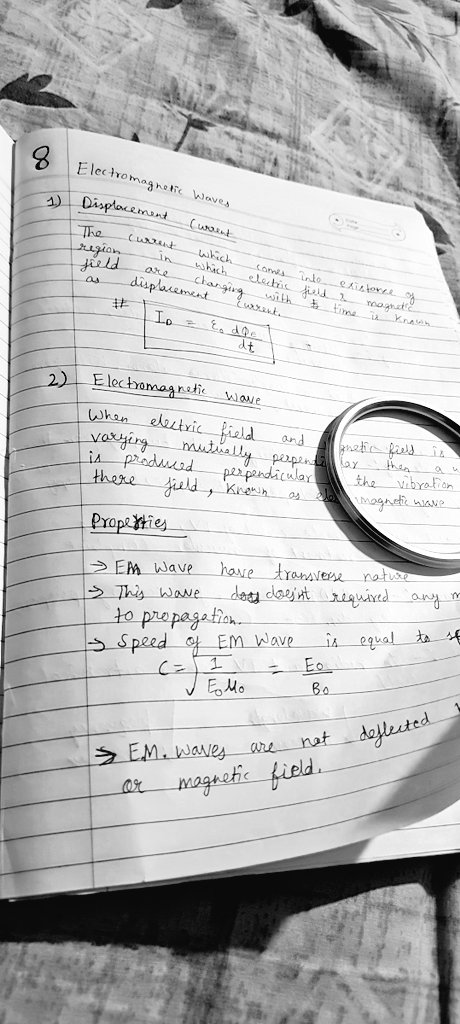 8
Electromagnetic Waves
1) Displacement Current
The current which comes into existence of
region in which electric field & magnetic
field are changing with time is known
as displacement current.
# I_D = ε₀ dφ_E / dt
2) Electromagnetic wave
When electric field and gnetic field is
varying mutually perpend lar then a
is produced perpendicular the vibration
there field, known as magnetic wave
Properties
→ EM Wave have transverse nature
→ This wave doesint required any
to propagation.
→ Speed of EM Wave is equal to
C = √ 1 / ε₀μ₀ = E₀ / B₀
→ E.M. waves are not deflected
or magnetic field.